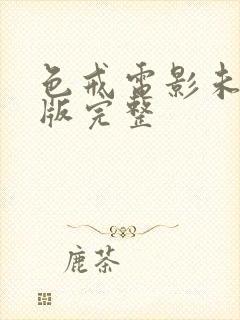 色戒雷影未
版完整
鹿茶